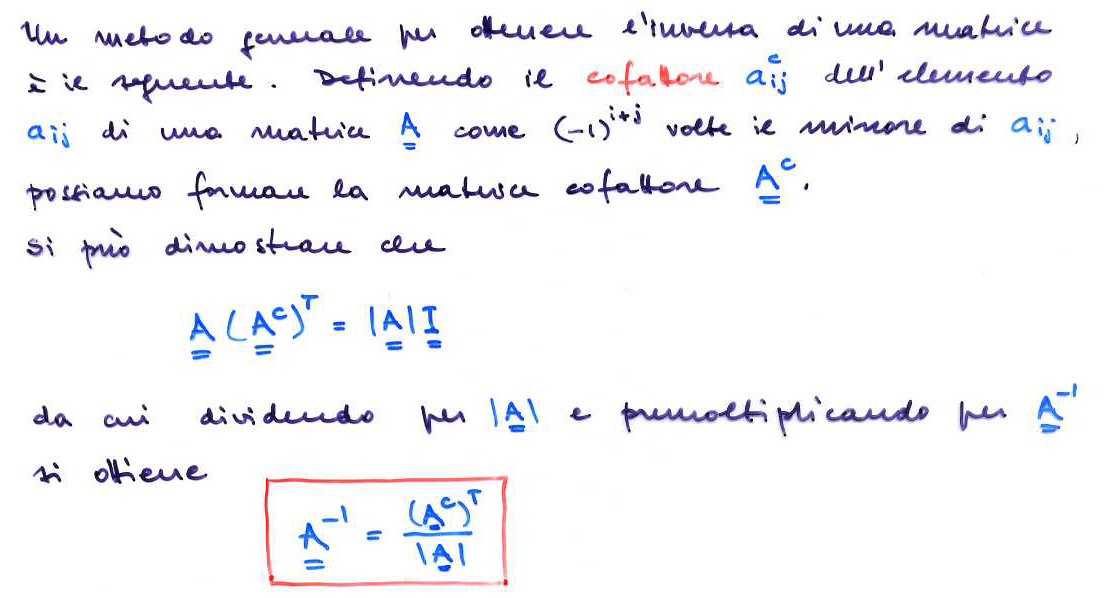 Un metodo generale per ottenere l'inversa di una matrice
è il seguente. Definendo il cofattore aᶜᵢⱼ dell'elemento
aᵢⱼ di una matrice A come (-1)ⁱ⁺ʲ volte il minore di aᵢⱼ,
possiamo formare la matrice cofattore Aᶜ.
Si può dimostrare che
A (Aᶜ)ᵀ = |A| I
da cui dividendo per |A| e premoltiplicando per A⁻¹
si ottiene
A⁻¹ = (Aᶜ)ᵀ / |A|